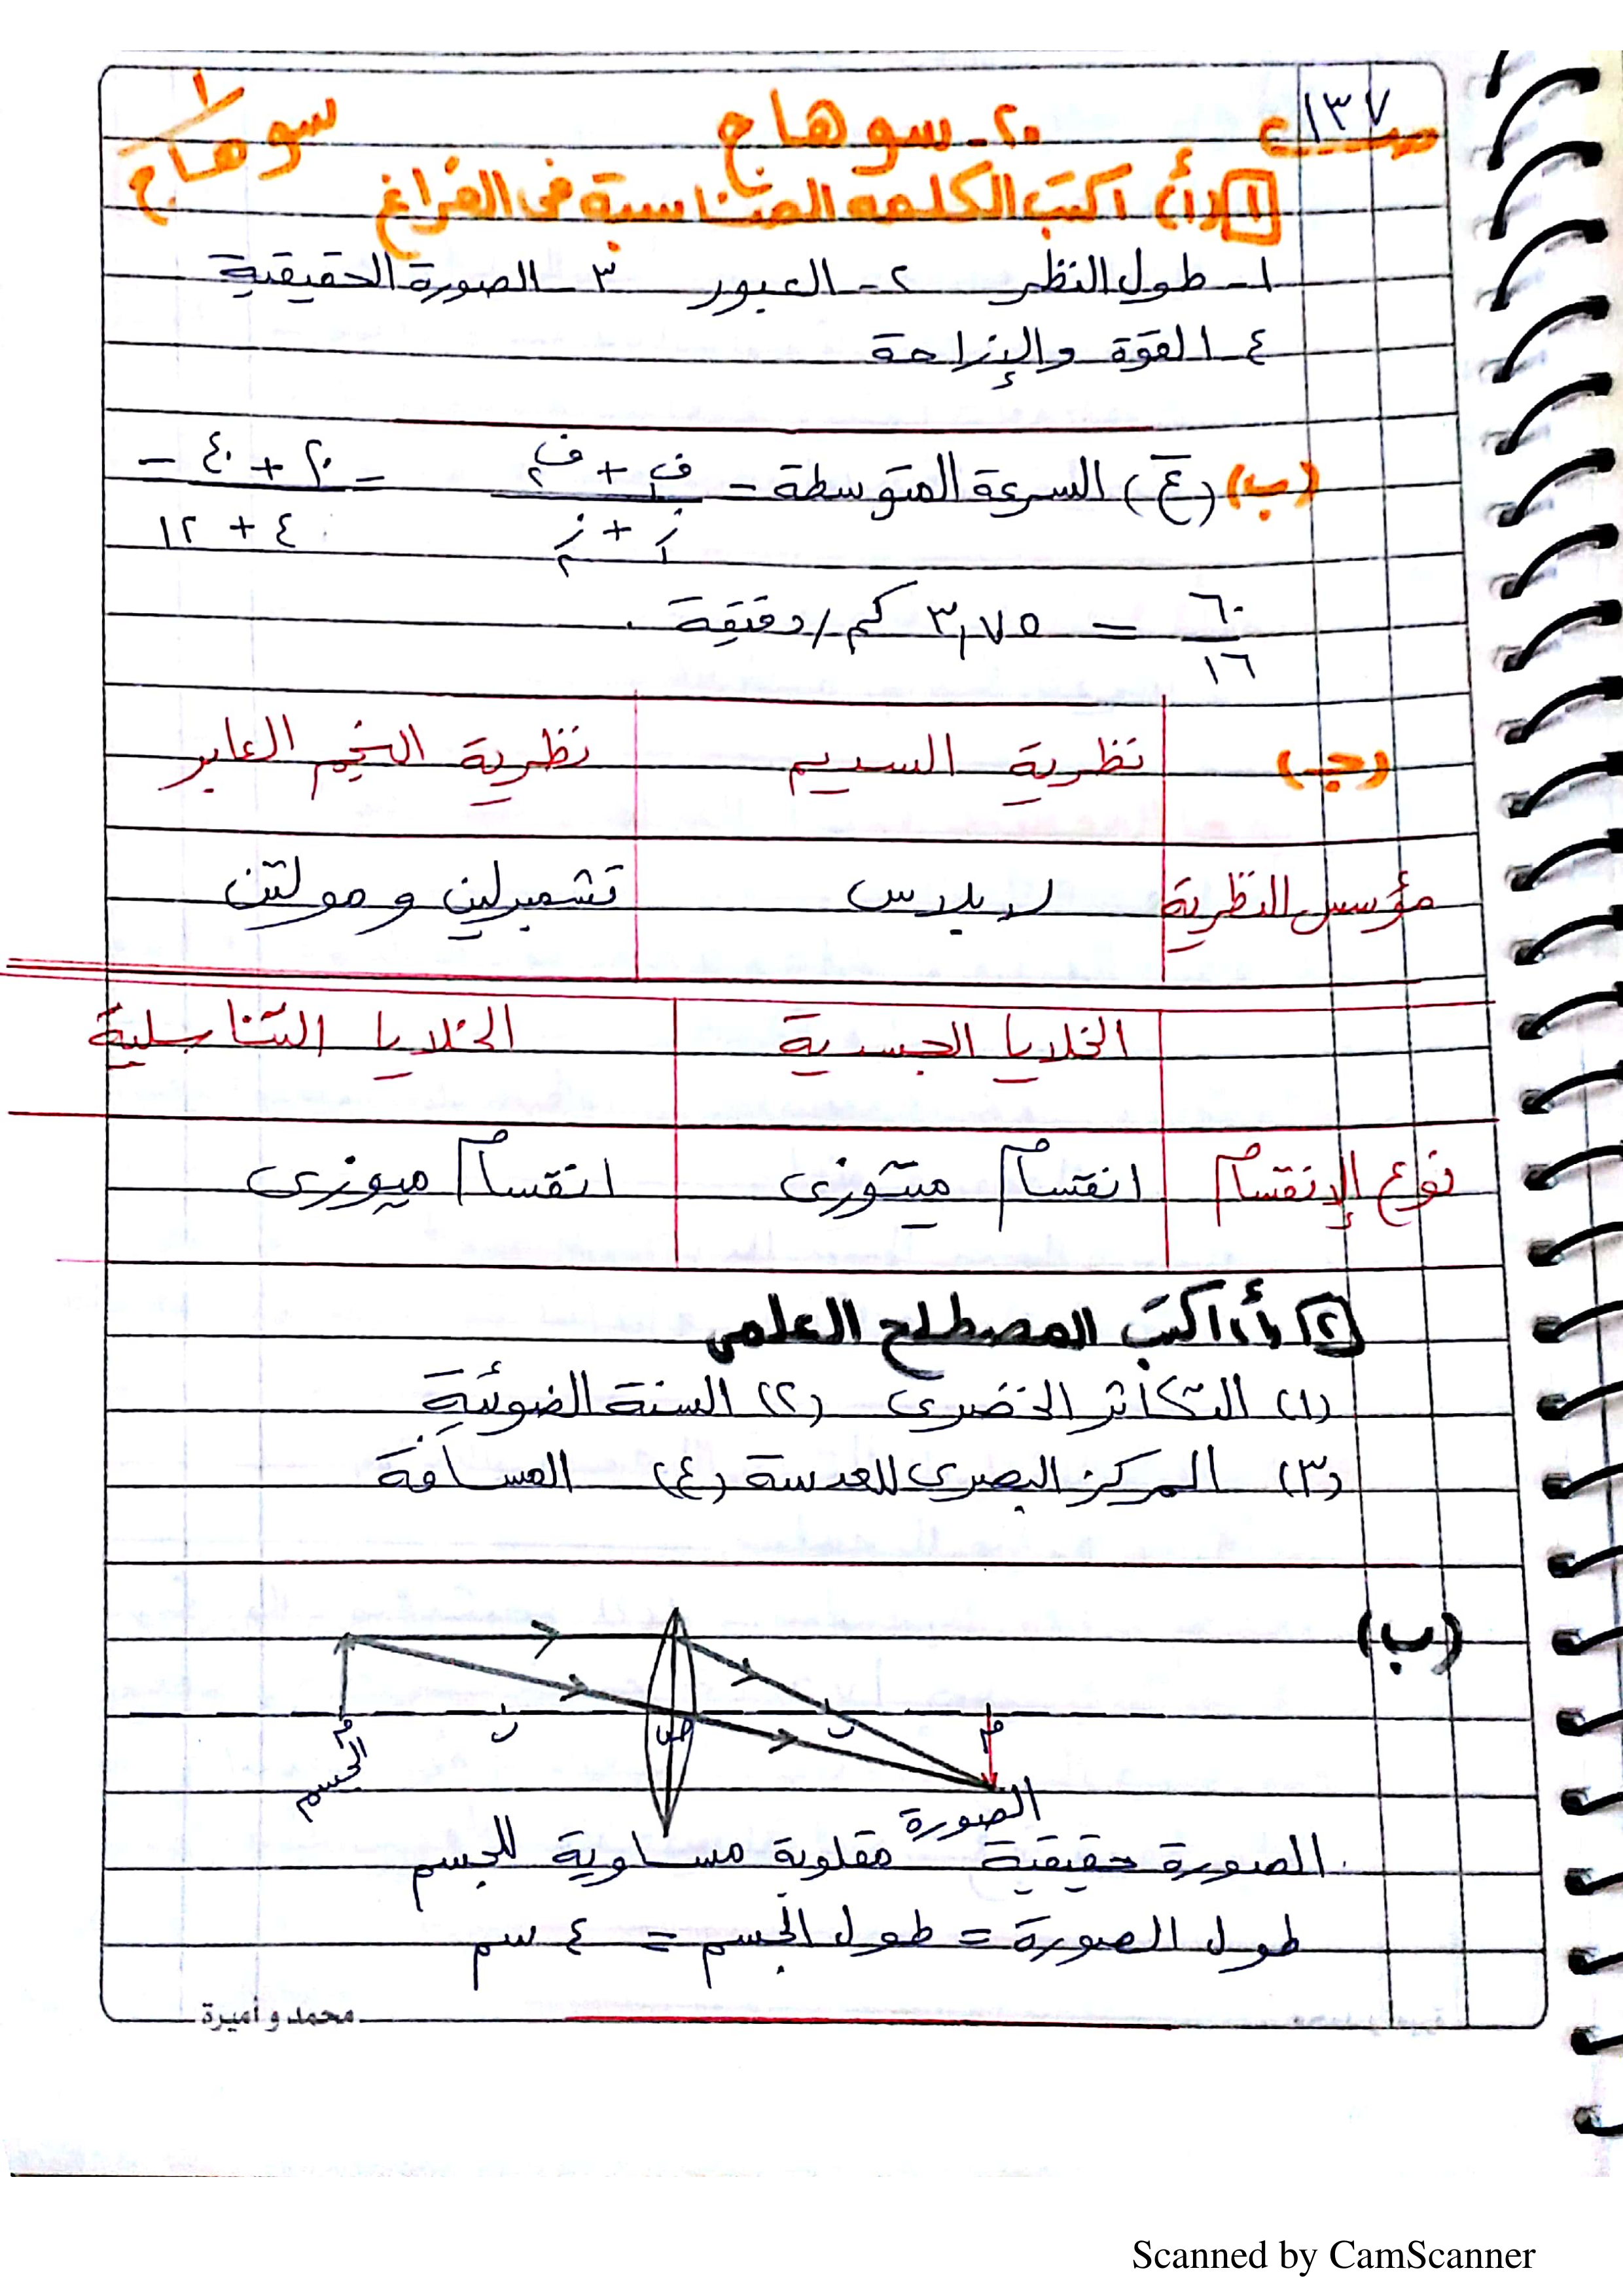 صـ ١٣٧
٢٠ـ سوهاج
سوهاج
١ (أ) اكتب الكلمة المناسبة فى الفراغ
١ـ طول النظر ٢ـ العبور ٣ـ الصورة الحقيقية
٤ـ القوة والإزاحة
(ب) (ع̄) السرعة المتوسطة = ف١ + ف٢ / ز١ + ز٢ = ٢٠ + ٤٠ / ٤ + ١٢ =
٦٠ / ١٦ = ٣,٧٥ كم/دقيقة
(جـ) نظرية السديم نظرية النجم العابر
مؤسس النظرية لابلاس تشمبرلين و مولتن
الخلايا الجسدية الخلايا التناسلية
نوع الإنقسام انقسام ميتوزى انقسام ميوزى
٢ (أ) اكتب المصطلح العلمى
(١) التكاثر الخضرى (٢) السنة الضوئية
(٣) المركز البصرى للعدسة (٤) المسافة
(ب)
م ب ص ب م
الجسم
الصورة
الصورة حقيقية مقلوبة مساوية للجسم
طول الصورة = طول الجسم = ٤ سم
محمد و أميرة
Scanned by CamScanner